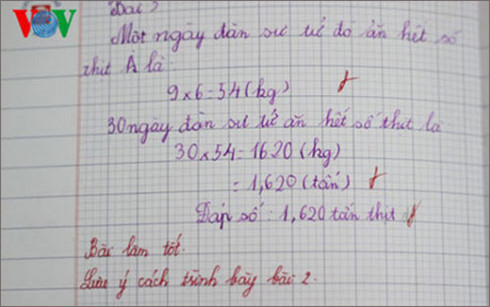 VOV
Bài 2
Một ngày đàn sư tử đó ăn hết số
thịt là
9 x 6 = 54 (kg)
30 ngày đàn sư tử ăn hết số thịt là
30 x 54 = 1620 (kg)
= 1,620 (tấn)
Đáp số : 1,620 tấn thịt
Bài làm tốt.
Lưu ý cách trình bày bài 2.